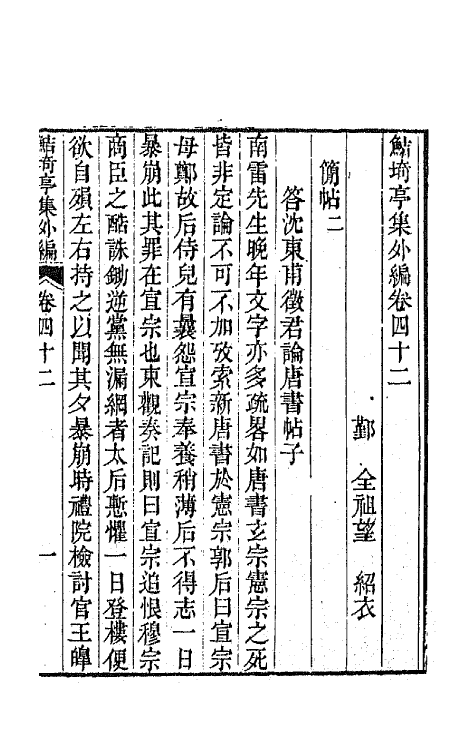 鮚埼亭集外編卷四十二
鄞　全祖望　紹衣
簡帖二
答沈東甫徵君論唐書帖子
南雷先生晚年文字亦多疏畧如唐書玄宗憲宗之死
皆非定論不可不加攷索新唐書於憲宗郭后曰宣宗
母鄭故后侍兒有曩怨宣宗奉養稍薄后不得志一日
暴崩此其罪在宣宗也東觀奏記則曰宣宗追恨穆宗
商臣之酷誅鋤逆黨無漏網者太后慙懼一日登樓便
欲自殞左右持之以聞其夕暴崩時禮院檢討官王皥
鮚埼亭集外編　卷四十二　一